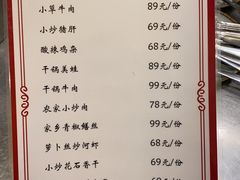 小草牛肉 89元/份
小炒猪肝 69元/份
酸辣鸡杂 68元/份
干锅美蛙 89元/份
干锅牛肉 99元/份
农家小炒肉 78元/份
家乡青椒鳝丝 99元/份
萝卜丝炒河虾 68元/份
小炒花石香干 69元/份
68元/份